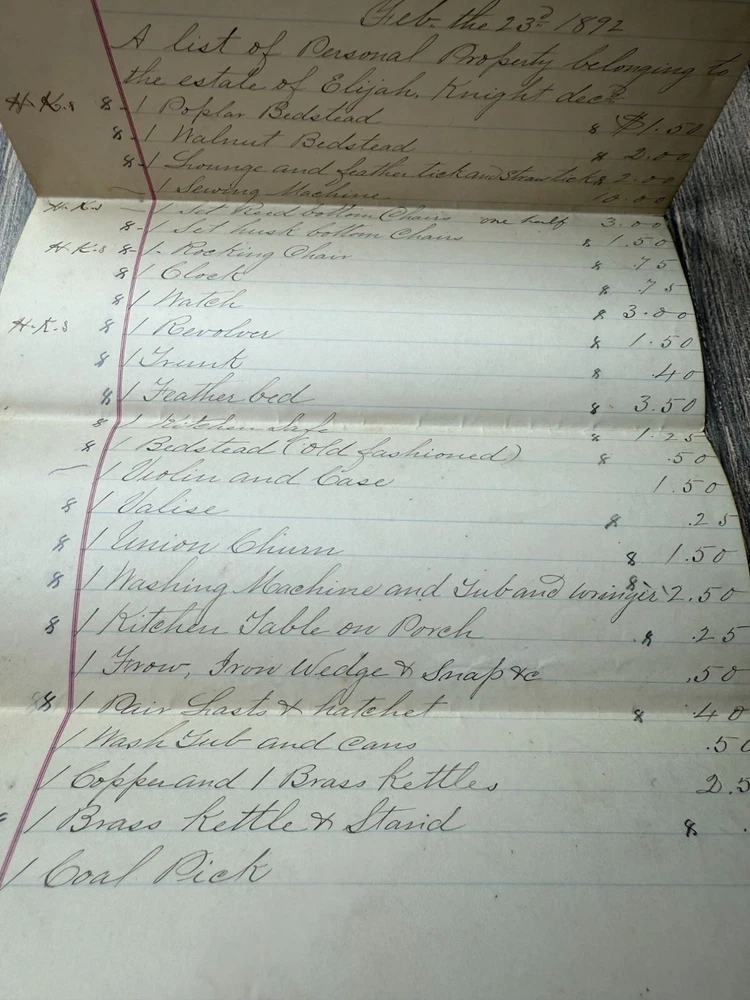 Feb. the 23d 1892
A list of Personal Property belonging to
the estate of Elijah. Knight decd
H.K.s 8 - 1 Poplar Bedstead 8 $1.50
8 - 1 Walnut Bedstead 8 2.00
8 - 1 Lounge and feather tick and Straw tick 8 2.00
1 Sewing Machine 10.00
H.K.s 1 Set Reed bottom Chairs one half 3.00
8 - 1 Set husk bottom Chairs 8 1.50
H.K.s 8 - 1 - Rocking Chair 8 .75
8 1 Clock 8 .75
8 1 Watch 8 3.00
H.K.s 8 1 Revolver 8 1.50
8 1 Trunk 8 .40
8 1 Feather bed 8 3.50
8 1 Kitchen Safe 8 1.25
8 1 Bedstead (old fashioned) 8 .50
1 Violin and Case 1.50
8 1 Valise 8 .25
8 1 Union Churn 8 1.50
8 1 Washing Machine and Tub and wringer 8 2.50
8 1 Kitchen Table on Porch 8 .25
1 Frow, Iron Wedge & Snap &c .50
8 1 Pair Lasts & hatchet 8 .40
1 Wash Tub and cans .50
1 Copper and 1 Brass Kettles 2.5
1 Brass Kettle & Stand 8 .
1 Coal Pick